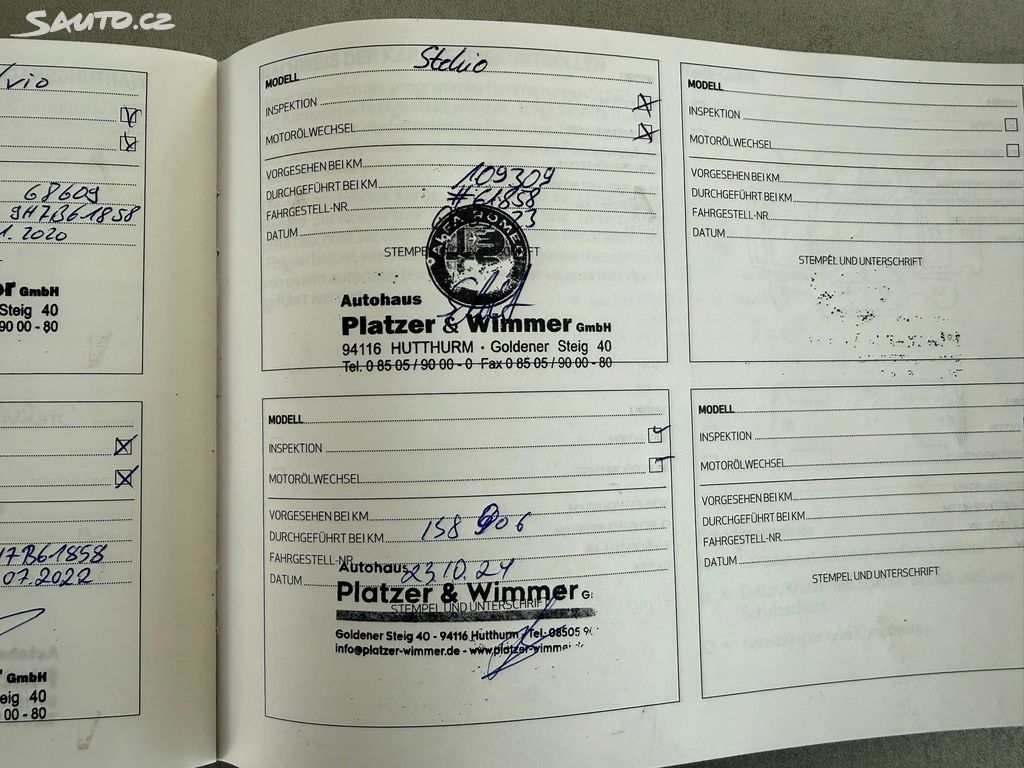 SAUTO.CZ
vio
68609
9H7B61858
1. 2020
or GmbH
Steig 40
90 00 - 80
H7B61858
07.2022
GmbH
eig 40
00 - 80
MODELL Stelvio
INSPEKTION
MOTORÖLWECHSEL
VORGESEHEN BEI KM
DURCHGEFÜHRT BEI KM 109309
FAHRGESTELL-NR. #61858
DATUM 23
STEMPEL UND UNTERSCHRIFT
ALFA ROMEO
Autohaus
Platzer & Wimmer GmbH
94116 HUTTHURM · Goldener Steig 40
Tel. 0 85 05 / 90 00 - 0 Fax 0 85 05 / 90 00 - 80
MODELL
INSPEKTION
MOTORÖLWECHSEL
VORGESEHEN BEI KM
DURCHGEFÜHRT BEI KM 158 906
FAHRGESTELL-NR.
DATUM 23.10.24
Autohaus
Platzer & Wimmer G
STEMPEL UND UNTERSCHRIFT
Goldener Steig 40 - 94116 Hutthurm / Tel. 08505 9
info@platzer-wimmer.de - www.platzer-wimmer.de
MODELL
INSPEKTION
MOTORÖLWECHSEL
VORGESEHEN BEI KM
DURCHGEFÜHRT BEI KM
FAHRGESTELL-NR.
DATUM
STEMPEL UND UNTERSCHRIFT
MODELL
INSPEKTION
MOTORÖLWECHSEL
VORGESEHEN BEI KM
DURCHGEFÜHRT BEI KM
FAHRGESTELL-NR.
DATUM
STEMPEL UND UNTERSCHRIFT